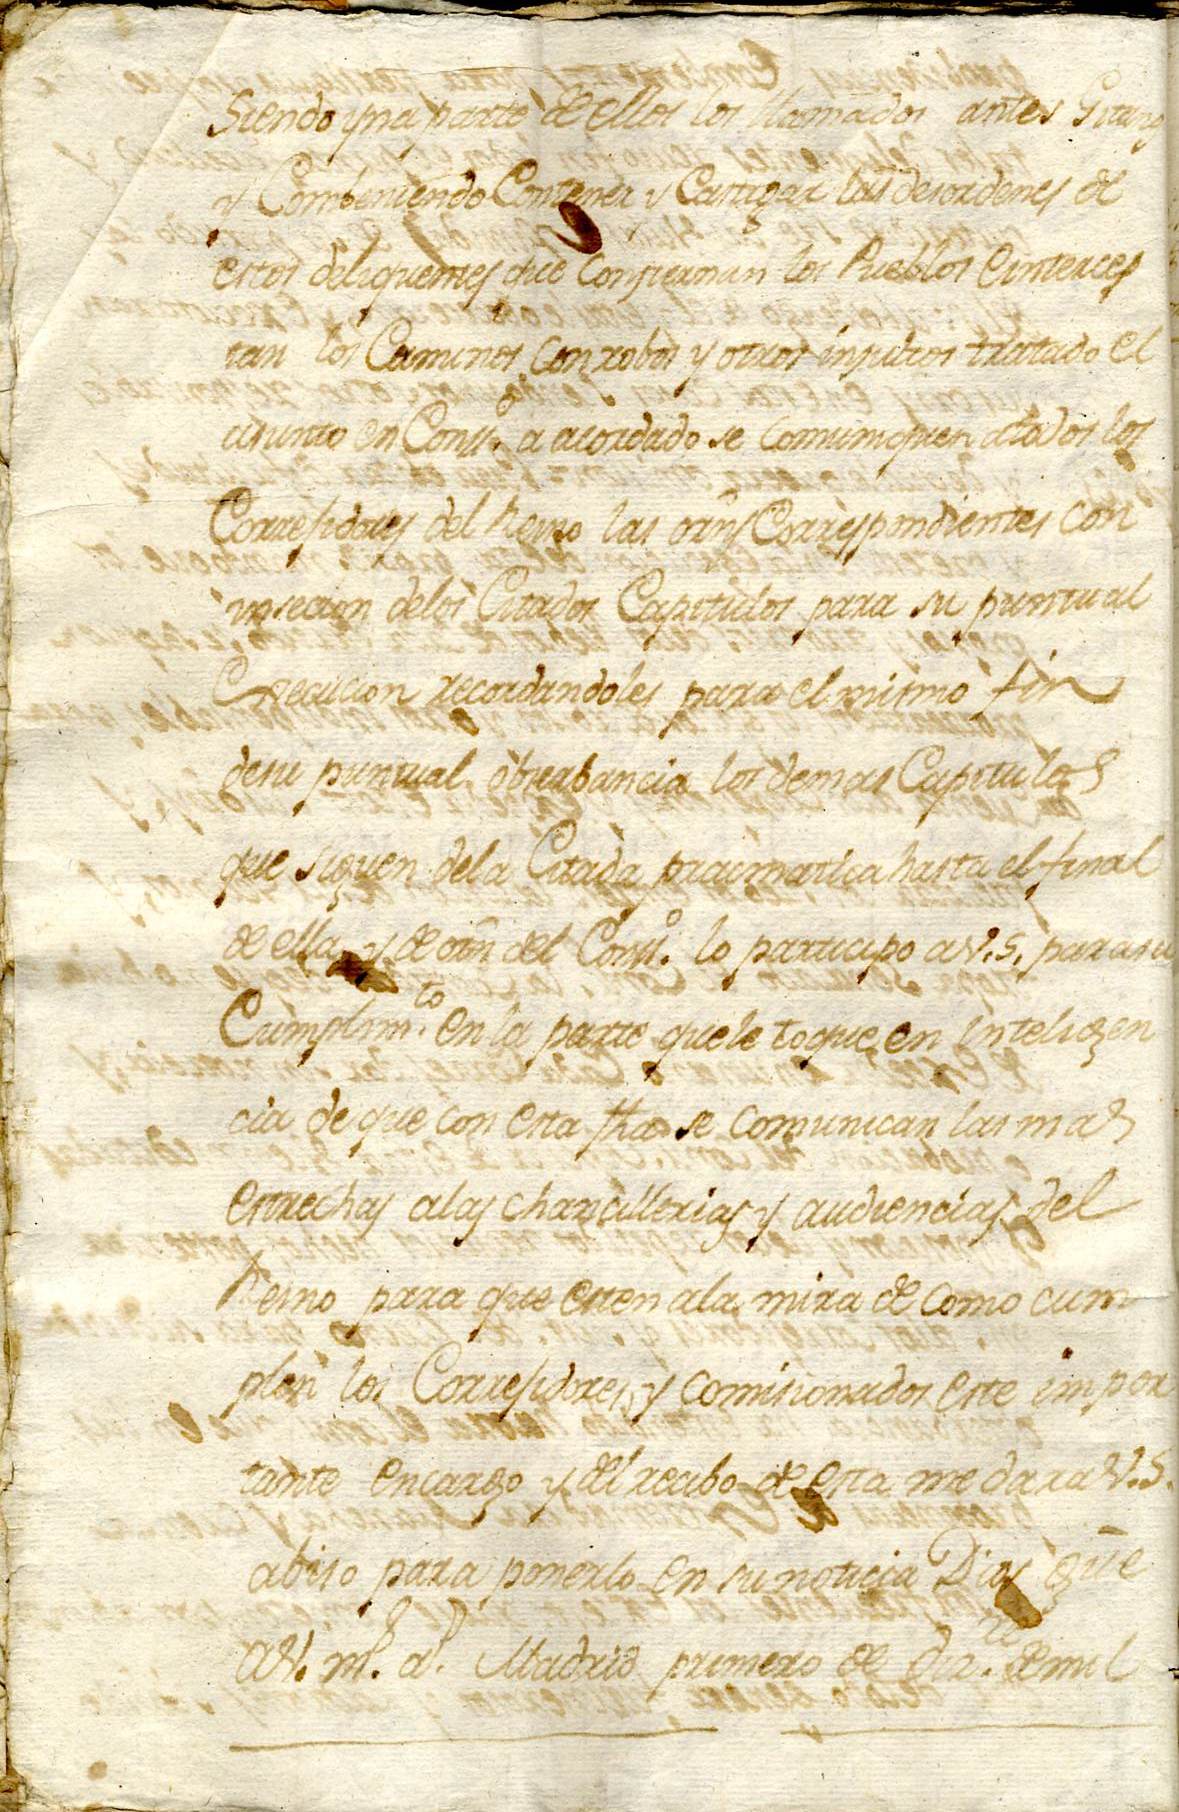 Siendo una parte de ellos los llamados antes Gitano
y Combeniendo Contener y Castigar los desordenes de
estos deliquentes que Consternan los Pueblos e interces
tan los Caminos con robos y otros insultos tratado el
asunto en Cons.º a acordado se Comuniquen a todos los
Corregidores del Reino las orns Correspondientes con
insecion delos Citados Capitulos para su puntual
Execucion recordandoles para el mismo fin
desu puntual obserbancia los demas Capitulos
que siguen dela Citada pracmatica hasta el final
de ella y de orn del Cons.º lo participo a V.S. para su
Cumplim.to en la parte que le toque en inteligen
cia de que con esta fha se comunican las mas
estrechas a las chancillerias y audiencias del
Reino para que esten ala mira de como cum
plen los Corregidores y comisionados este impor
tante encargo y del recibo de esta me dara V.S.
abiso para ponerlo en su noticia Dios gũe
a V. m.s a.s Madrid primero de Diz.re de mil